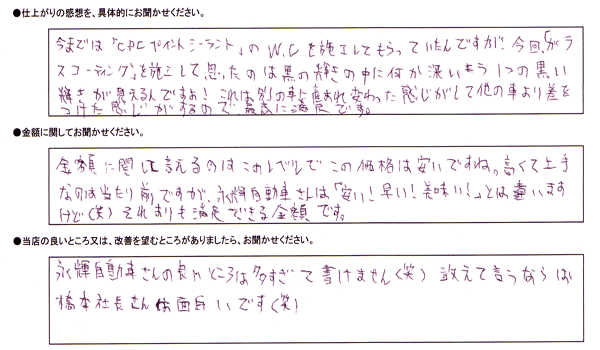 ●仕上がりの感想を、具体的にお聞かせください。
今までは「CPCペイントシーラント」のW.Cを施工してもらっていたんですが、今回、「ガラ
スコーティング」を施工して思ったのは黒の輝きの中に何か深いもう1つの黒い
輝きが見えるんですよ！これは別の車に産まれ変わった感じがして他の車より差を
つけた感じがするので最高に満足です。
●金額に関してお聞かせください。
金額に関して言えるのはこのレベルでこの価格は安いですね。高くて上手
なのは当たり前ですが、永輝自動車さんは「安い！早い！美味い！」とは違います
けど（笑）それよりも満足できる金額です。
●当店の良いところ又は、改善を望むところがありましたら、お聞かせください。
永輝自動車さんの良いところは多すぎて書けません（笑）敢えて言うならば
橋本社長さんは面白いです（笑）